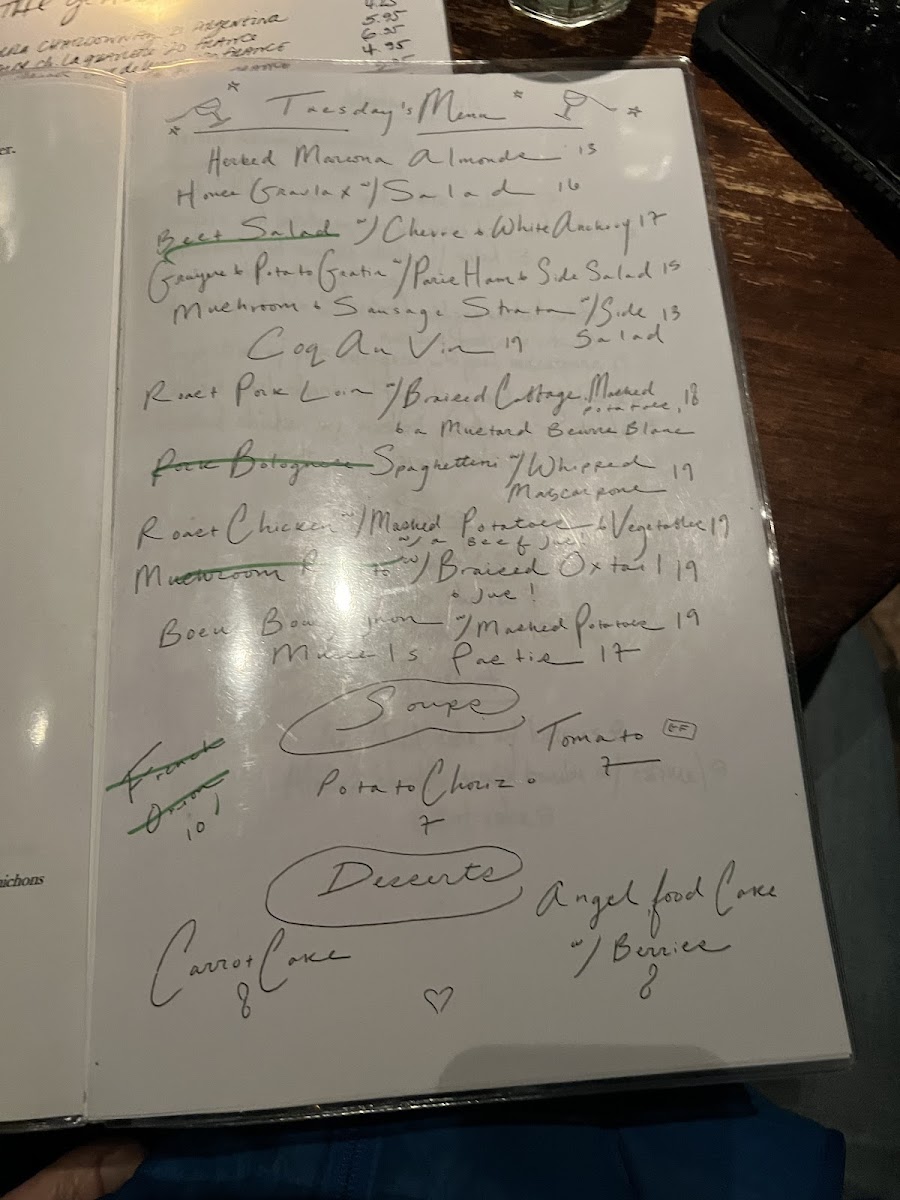 5.95
CHARDONNAY ARGENTINA 6.95
FRANCE 4.95
er.
nichons
Tuesday's Menu
Herbed Marcona Almonds 13
House Gravlax w/ Salad 16
Beet Salad w/ Chevre & White Anchovy 17
Gruyere & Potato Gratin w/ Paris Ham & Side Salad 15
Mushroom & Sausage Strata w/ Side 13
Salad
Coq Au Vin 19
Roast Pork Loin w/ Braised Cabbage, Mashed
potatoes, 18
& a Mustard Beurre Blanc
Pork Bolognese Spaghettini w/ Whipped 19
Mascarpone
Roast Chicken w/ Mashed Potatoes & Vegetables 19
w/ a Beef Jus!
Mushroom w/ Braised Oxtail 19
& Jus!
Boeuf w/ Mashed Potatoes 19
Mussels Pastis 17
Soups
Tomato GF
7
French
Onion!
10
Potato Chorizo
7
Desserts
Angel food Cake
w/ Berries
8
Carrot Cake
8